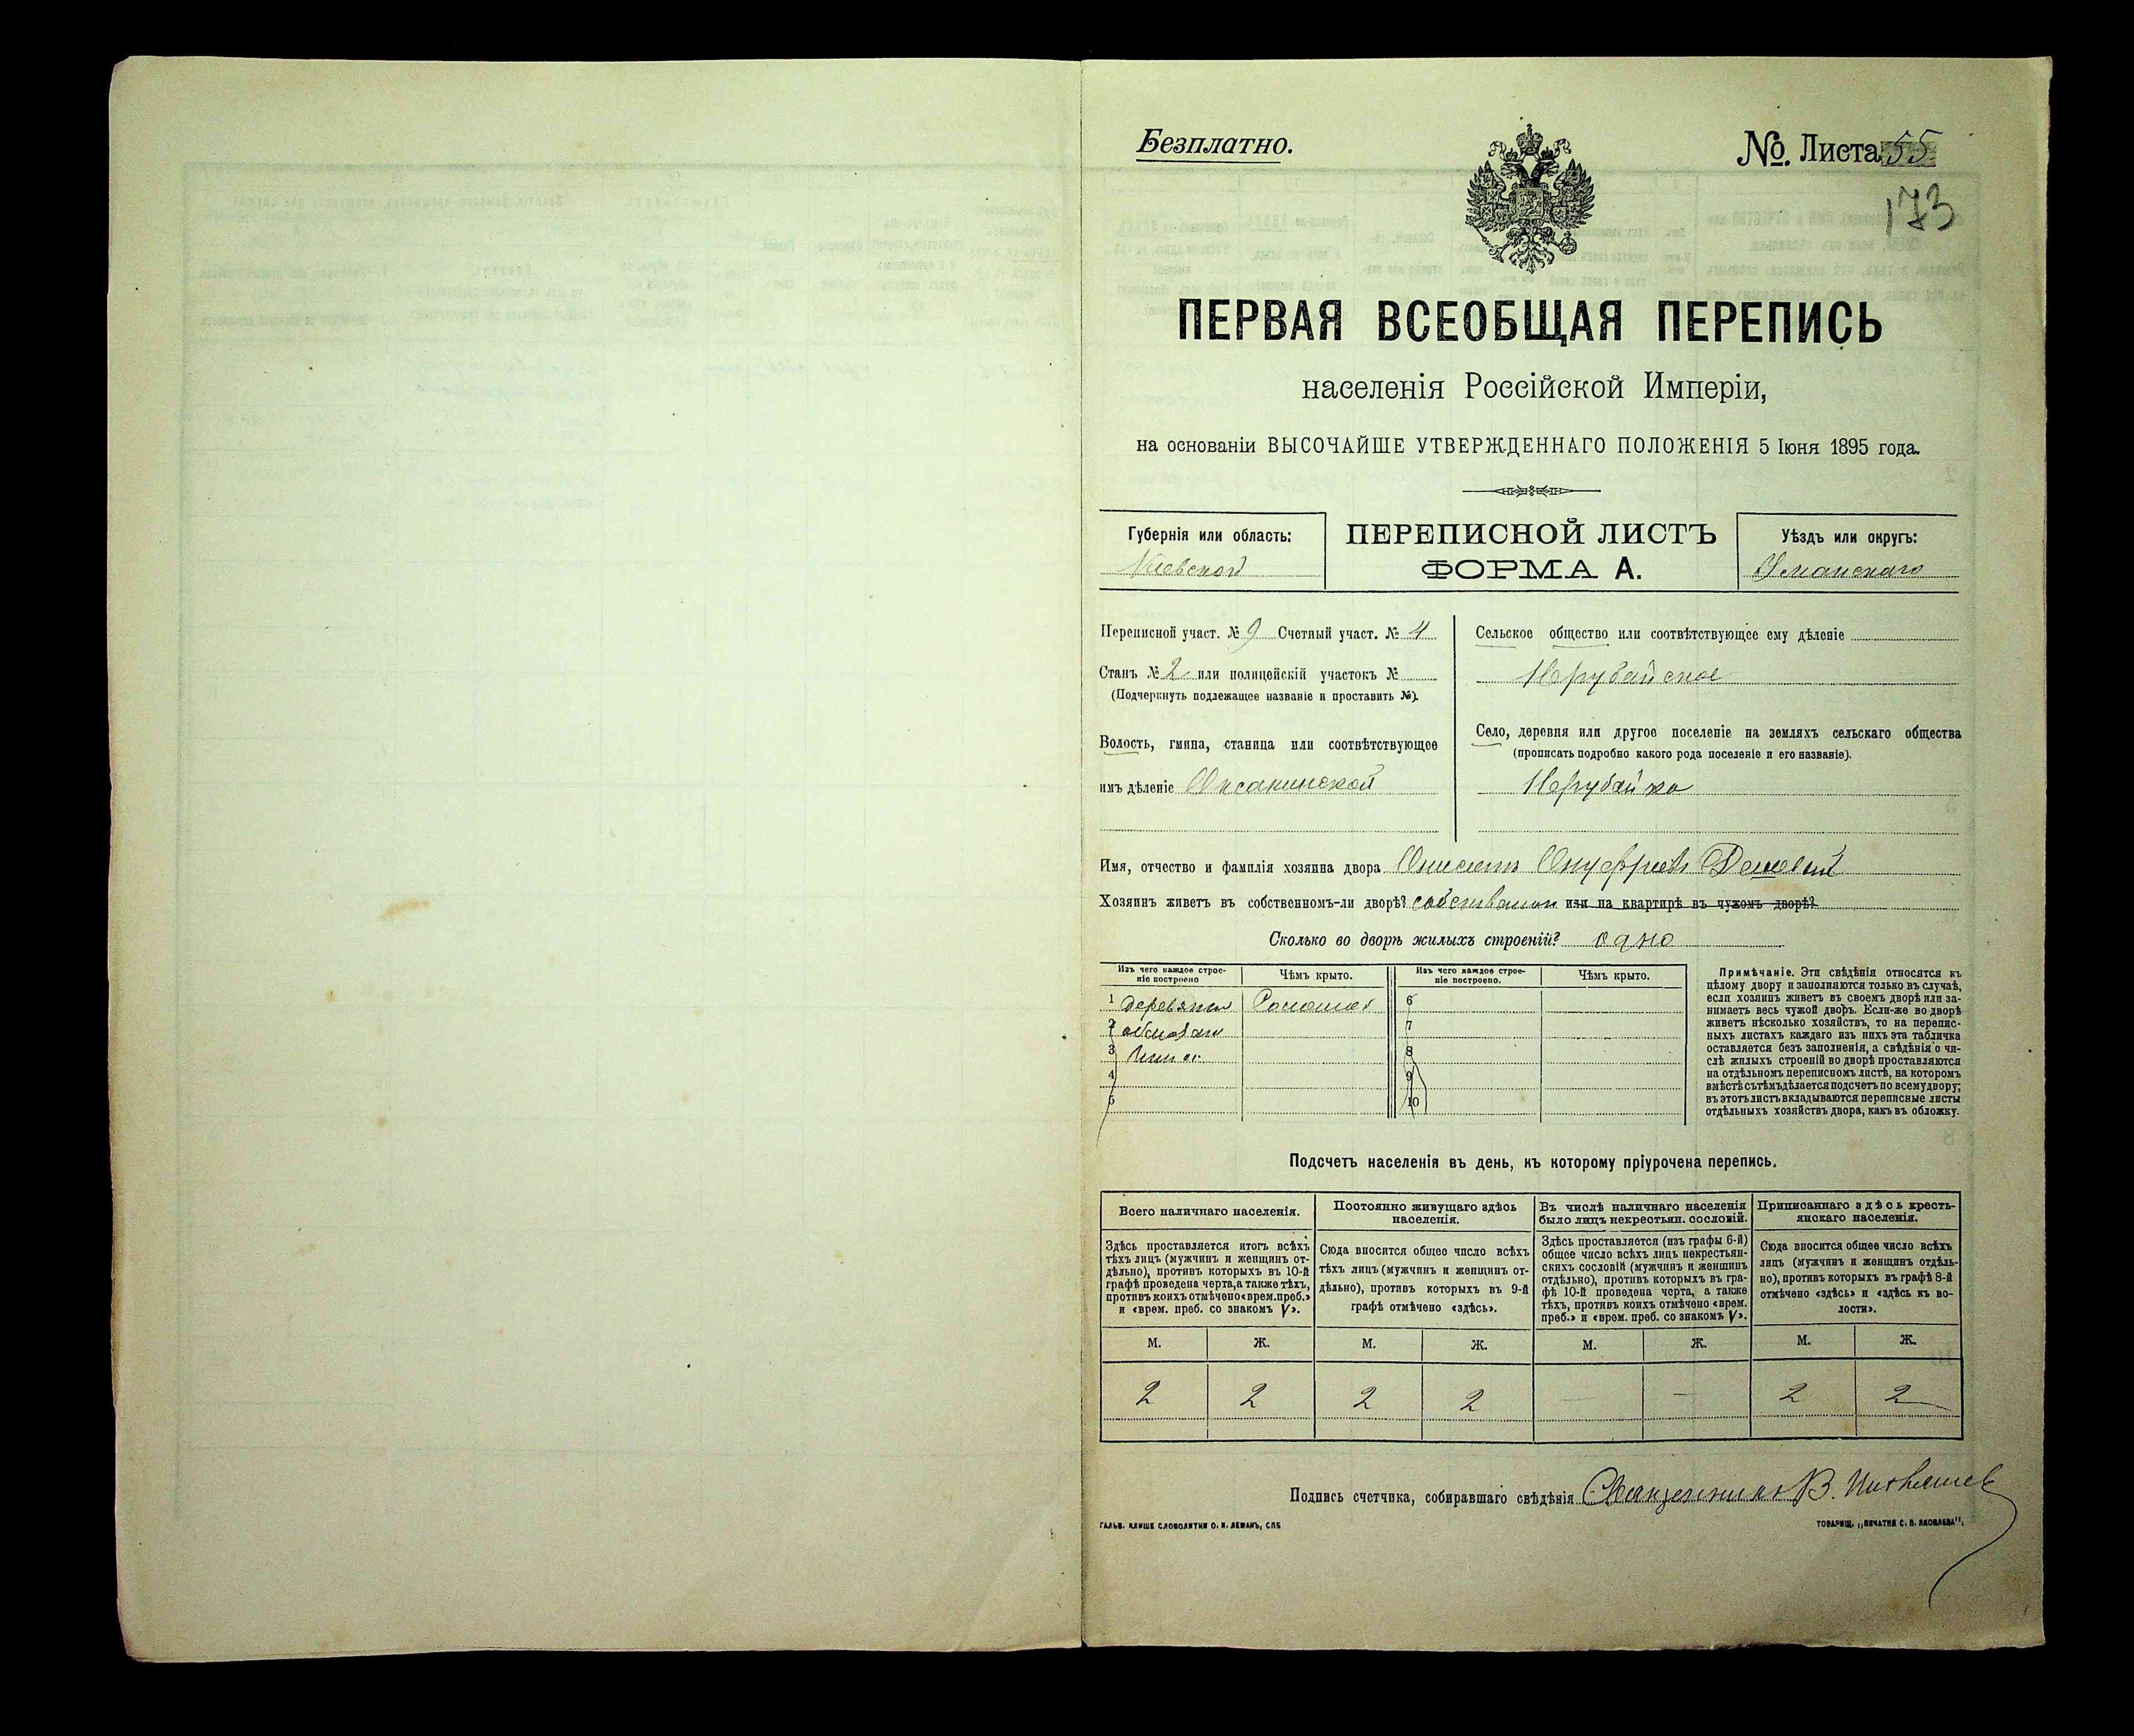 Безплатно.
№ Листа 55
173
ПЕРВАЯ ВСЕОБЩАЯ ПЕРЕПИСЬ
населенія Россійской Имперіи,
на основаніи ВЫСОЧАЙШЕ УТВЕРЖДЕННАГО ПОЛОЖЕНІЯ 5 Іюня 1895 года.
Губернія или область:
Кіевской
ПЕРЕПИСНОЙ ЛИСТЪ
ФОРМА А.
Уѣздъ или округъ:
Уманскаго
Переписной участ. № 9 Счетный участ. № 4
Станъ № 2 или полицейскій участокъ №
(Подчеркнуть подлежащее названіе и проставить №).
Волость, гмина, станица или соотвѣтствующее
имъ дѣленіе Оксанинской
Сельское общество или соотвѣтствующее ему дѣленіе
Нерубайское
Село, деревня или другое поселеніе на земляхъ сельскаго общества
(прописать подробно какого рода поселеніе и его названіе).
Нерубайка
Имя, отчество и фамилія хозяина двора Онисимъ Онуфріевъ
Хозяинъ живетъ въ собственномъ-ли дворѣ? собственном или на квартирѣ въ чужомъ дворѣ?
Сколько во дворѣ жилыхъ строеній? одно
Изъ чего каждое строе-
ніе построено
Чѣмъ крыто.
Изъ чего каждое строе-
ніе построено.
Чѣмъ крыто.
1 деревяни Соломой 6
2 обмазан 7
3 8
4 9
5 10
Примѣчаніе. Эти свѣдѣнія относятся къ
цѣлому двору и заполняются только въ случаѣ,
если хозяинъ живетъ въ своемъ дворѣ или за-
нимаетъ весь чужой дворъ. Если-же во дворѣ
живетъ нѣсколько хозяйствъ, то на перепис-
ныхъ листахъ каждаго изъ нихъ эта табличка
оставляется безъ заполненія, а свѣдѣнія о чи-
слѣ жилыхъ строеній во дворѣ проставляются
на отдѣльномъ переписномъ листѣ, на которомъ
вмѣстѣ съ тѣмъ дѣлается подсчетъ по всему двору;
въ этотъ листъ вкладываются переписные листы
отдѣльныхъ хозяйствъ двора, какъ въ обложку.
Подсчетъ населенія въ день, къ которому пріурочена перепись.
Всего наличнаго населенія.
Постоянно живущаго здѣсь
населенія.
Въ числѣ наличнаго населенія
было лицъ некрестьян. сословій.
Приписаннаго здѣсь кресть-
янскаго населенія.
Здѣсь проставляется итогъ всѣхъ
тѣхъ лицъ (мужчинъ и женщинъ от-
дѣльно), противъ которыхъ въ 10-й
графѣ проведена черта, а также тѣхъ,
противъ коихъ отмѣчено «врем. преб.»
и «врем. преб. со знакомъ V».
Сюда вносится общее число всѣхъ
тѣхъ лицъ (мужчинъ и женщинъ от-
дѣльно), противъ которыхъ въ 9-й
графѣ отмѣчено «здѣсь».
Здѣсь проставляется (изъ графы 6-й)
общее число всѣхъ лицъ некрестьян-
скихъ сословій (мужчинъ и женщинъ
отдѣльно), противъ которыхъ въ гра-
фѣ 10-й проведена черта, а также
тѣхъ, противъ коихъ отмѣчено «врем.
преб.» и «врем. преб. со знакомъ V».
Сюда вносится общее число всѣхъ
лицъ (мужчинъ и женщинъ отдѣль-
но), противъ которыхъ въ графѣ 8-й
отмѣчено «здѣсь» и «здѣсь къ во-
лости».
М. Ж. М. Ж. М. Ж. М. Ж.
2 2 2 2 — — 2 2
Подпись счетчика, собиравшаго свѣдѣнія Священникъ В.
ГАЛЬВ. КЛИШЕ СЛОВОЛИТНИ О. И. ЛЕМАНЪ, СПБ
ТОВАРИЩ. „ПЕЧАТНЯ С. П. ЯКОВЛЕВА".